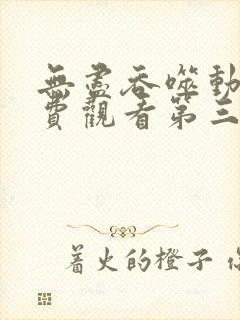 無盡吞噬動
費觀看第三
著火的橙子